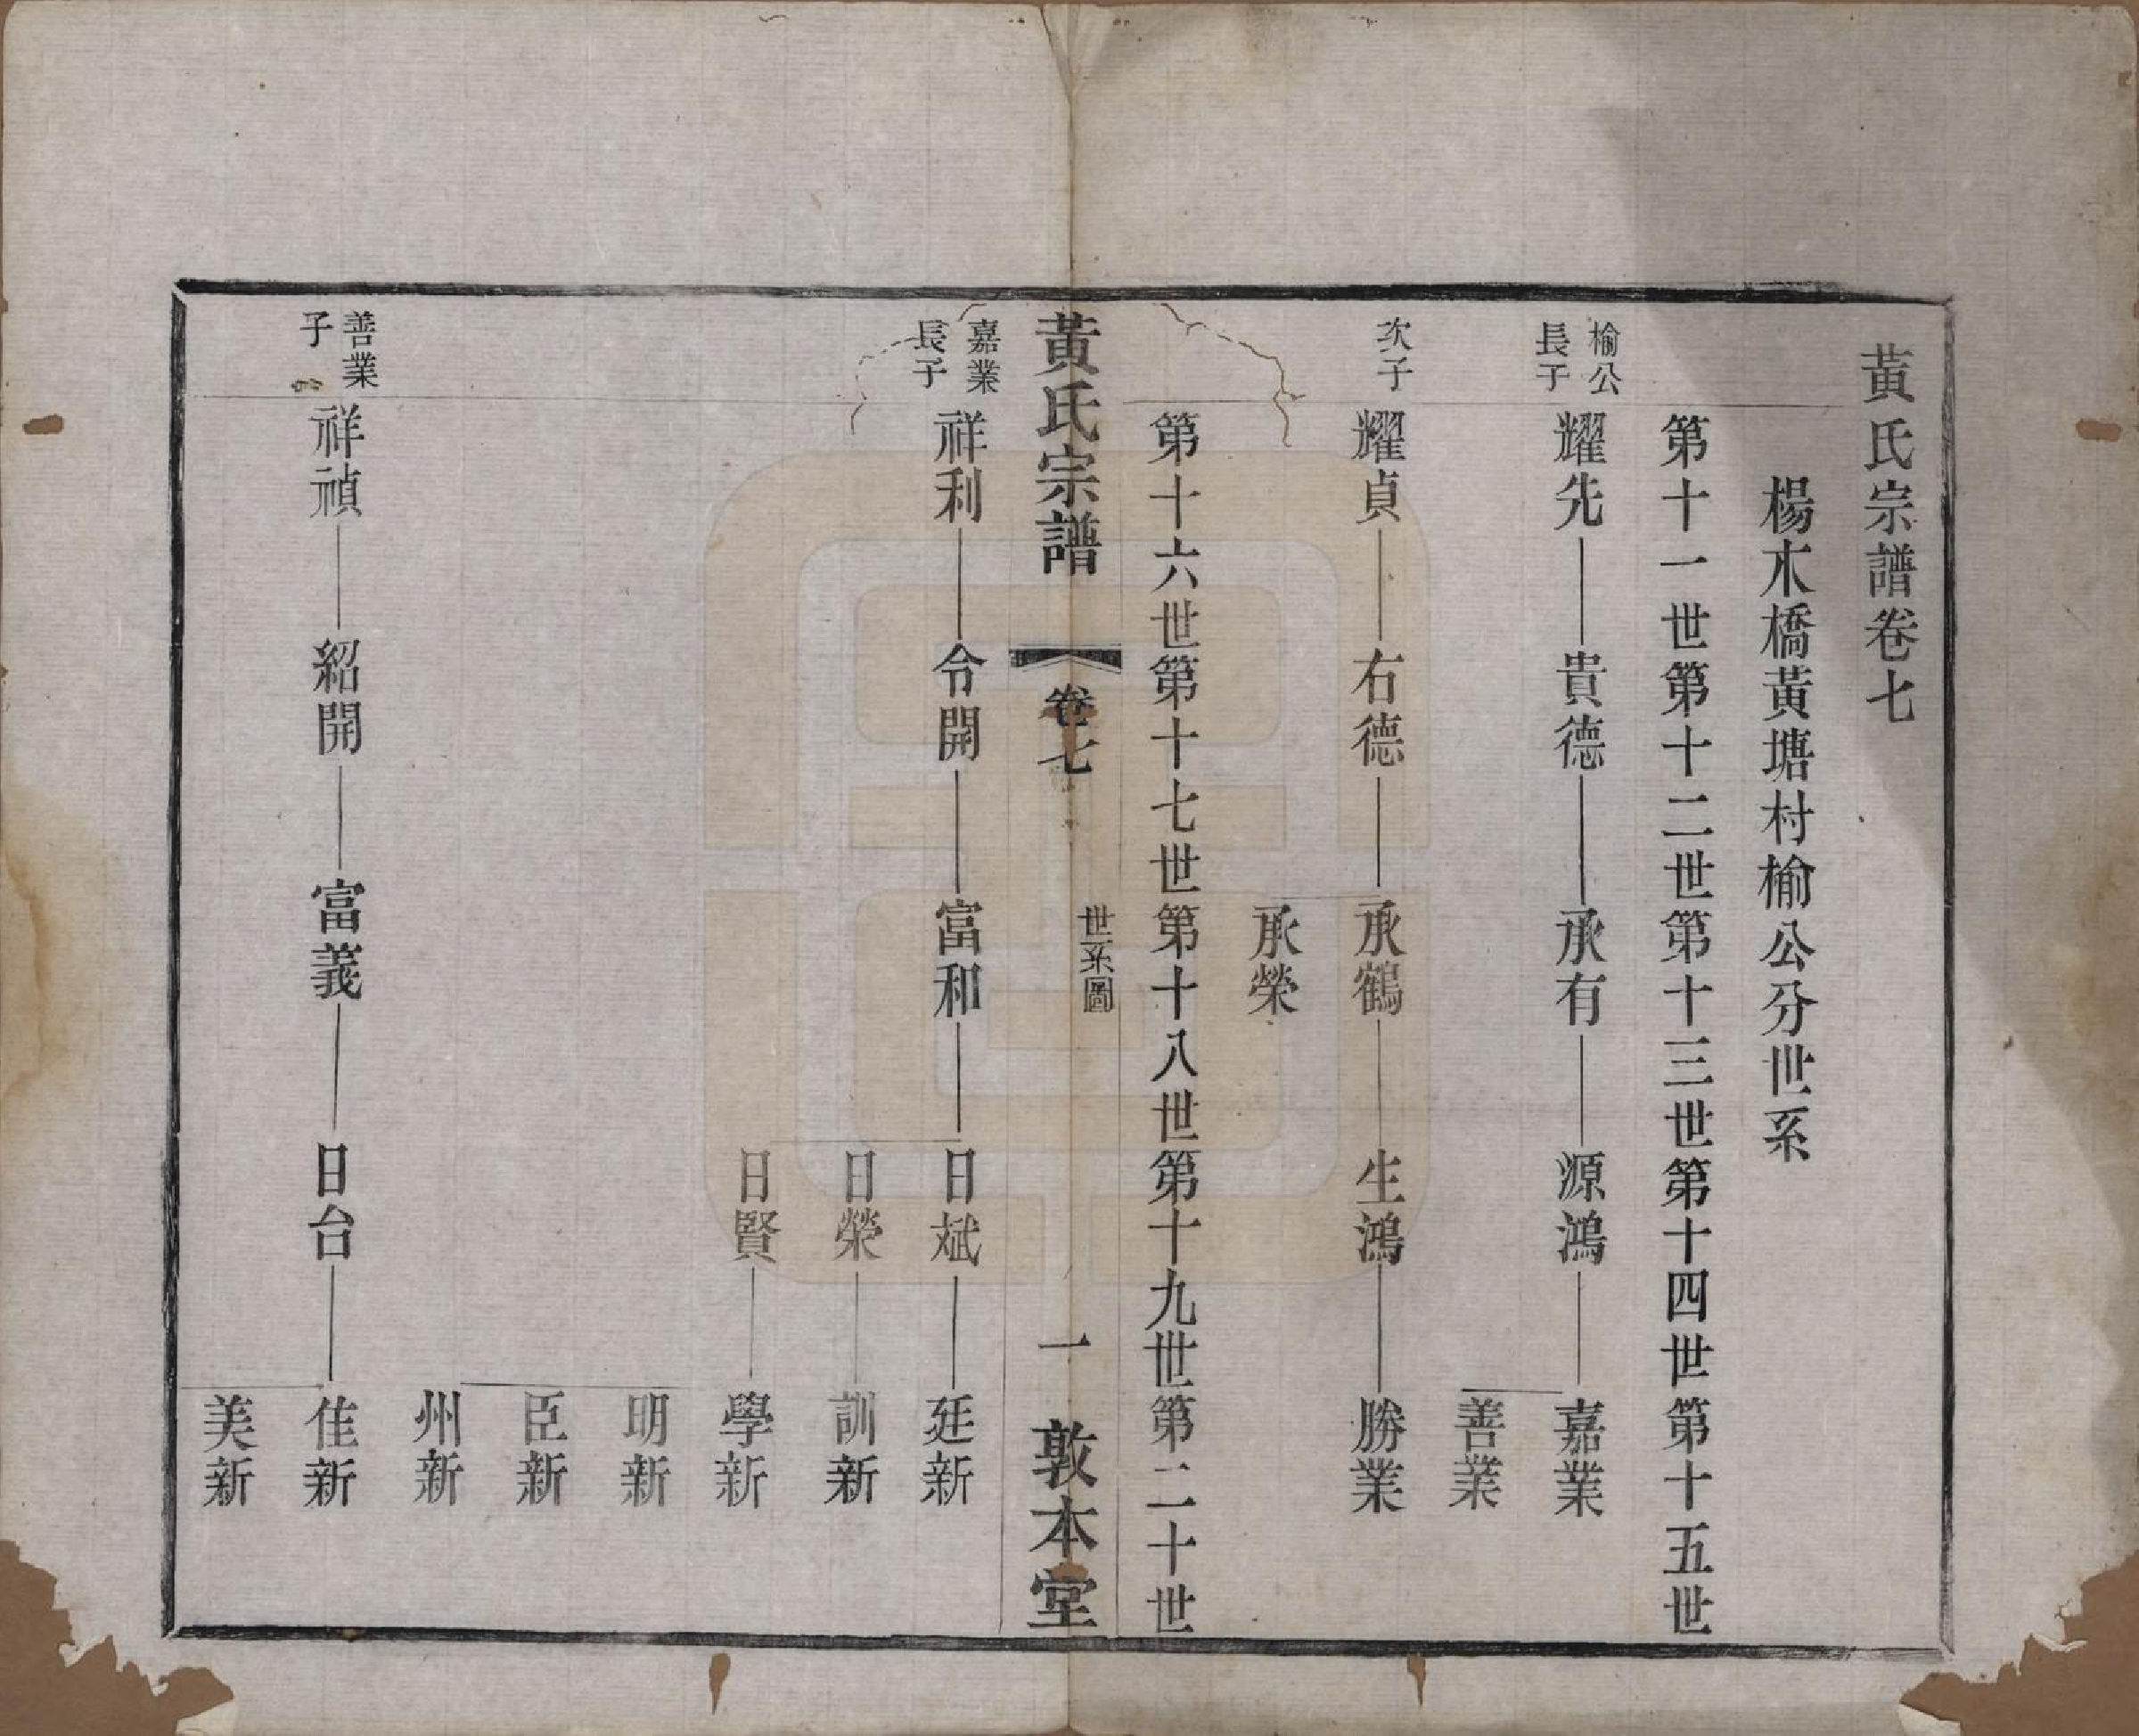 黃氏宗譜卷七
楊木橋黃塘村榆公分世系
第十一世第十二世第十三世第十四世第十五世
榆公
長子
耀先 貴德 承有 源鴻 嘉業
善業
次子
耀貞 右德 承鶴 生鴻 勝業
承榮
第十六世第十七世第十八世第十九世第二十世
黃氏宗譜 卷七 世系圖 一 敦本堂
嘉業
長子
祥利 令開 富和 日斌 廷新
日榮 訓新
日賢 學新
明新
臣新
州新
善業
子
祥禎 紹開 富義 日台 佳新
美新